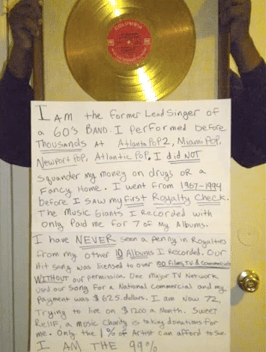 COLUMBIA
I AM the Former Lead Singer of
a 60's BAND. I performed before
Thousands AT Atlanta Pop 2, Miami Pop,
Newport Pop, Atlantic Pop. I did NOT
Squander my money on drugs or a
Fancy Home. I went from 1967-1994
before I saw my first Royalty Check.
The Music Giants I Recorded with
only Paid me for 7 of my Albums.
I have NEVER seen a penny in Royalties
from my other 10 Albums I Recorded. Our
Hit Song was licensed to over 100 Films, TV & Commercials
WITHOUT our permission. One Major TV Network
used our Song for a National Commercial and my
Payment was $625. dollars. I am Now 72,
Trying to live on $1200 a Month. Sweet
Relief, a music Charity is taking donations for
me. Only the 1% of Artist Can afford to Sue.
I AM THE 99%